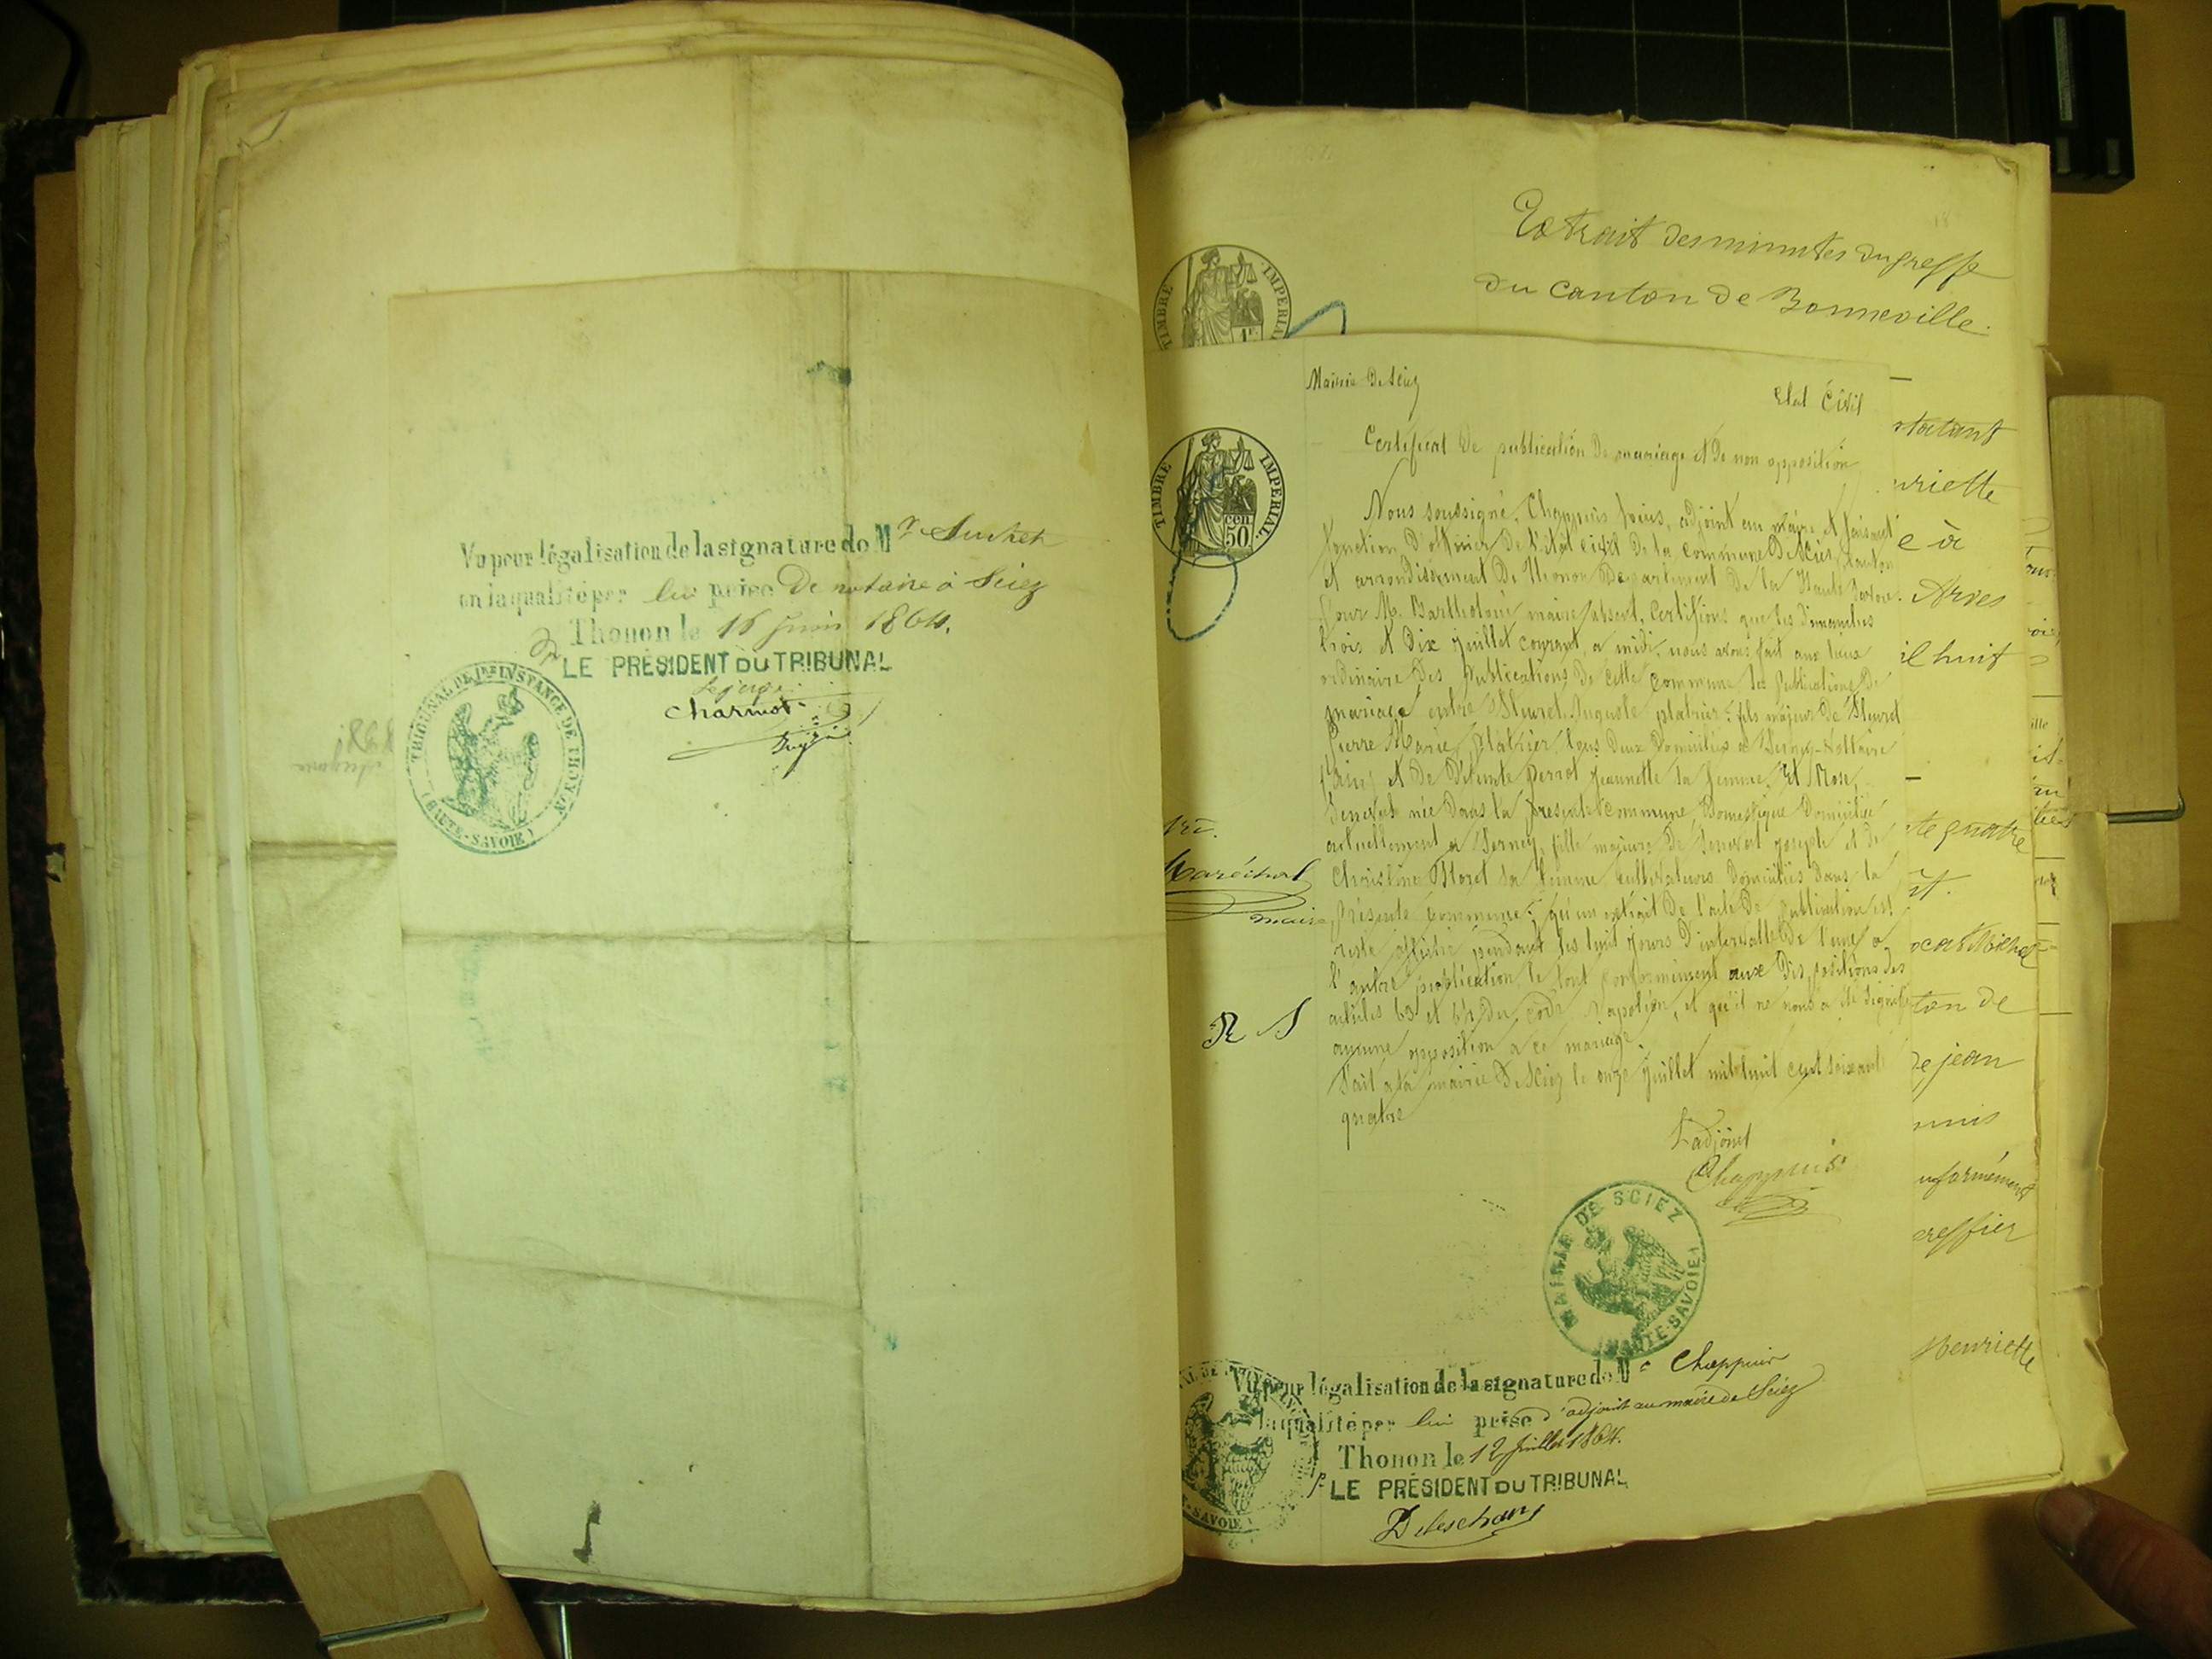 Vu pour légalisation de la signature de Mr Suchet
en la qualité par lui prise de notaire à Sciez
Thonon le 16 juin 1864.
Pr LE PRÉSIDENT DU TRIBUNAL
Le juge
Charmot
Juge
TRIBUNAL DE 1RE INSTANCE DE THONON
(HAUTE-SAVOIE)
Extrait des minutes du greffe
du canton de Bonneville.
TIMBRE IMPERIAL
1F.
Mairie de Sciez
Etat Civil
TIMBRE IMPERIAL
50 cen
Certificat de publication de mariage et de non opposition
Nous soussigné, Chappuis adjoint au maire et faisant
fonction d'officier de l'état civil de la commune de Sciez, canton
et arrondissement de Thonon département de la Haute Savoie.
pour M. Bartholoni maire absent, certifions que les dimanches
trois et dix juillet courant, a midi, nous avons fait aux lieux
ordinaire des publications de cette commune les publications de
mariage entre Auguste platrier, fils majeur de
Pierre Marie, platrier, tous deux domiciliés a Ferney-Voltaire
(Ain) et de Perrot Jeannette sa femme, Et Rose,
née dans la présente commune, Domestique domiciliée
actuellement a Ferney, fille majeure de Joseph et de
Christine sa femme cultivateurs domiciliés dans la
présente commune; qu'un extrait de l'acte de publication est
resté affiché pendant les huit jours d'intervalle de l'une a
l'autre publication, le tout conformément aux dispositions des
articles 63 et 64 du code Napoléon, et qu'il ne nous a été signifié
aucune opposition a ce mariage.
Fait a la mairie de Sciez le onze juillet mil huit cent soixante
quatre
L'adjoint
Chappuis
MAIRIE DE SCIEZ
(HAUTE-SAVOIE)
Vu pour légalisation de la signature de Mr Chappuis
la qualité par lui prise d'adjoint au maire de Sciez
Thonon le 12 juillet 1864.
Pr LE PRÉSIDENT DU TRIBUNAL
Deleschaux
SAVOIE
Maréchal
maire
R S
statant
uriette
e à
Arves
il huit
te quatre
ocat Michel
ton de
de jean
unis
nformément
greffier
Henriette